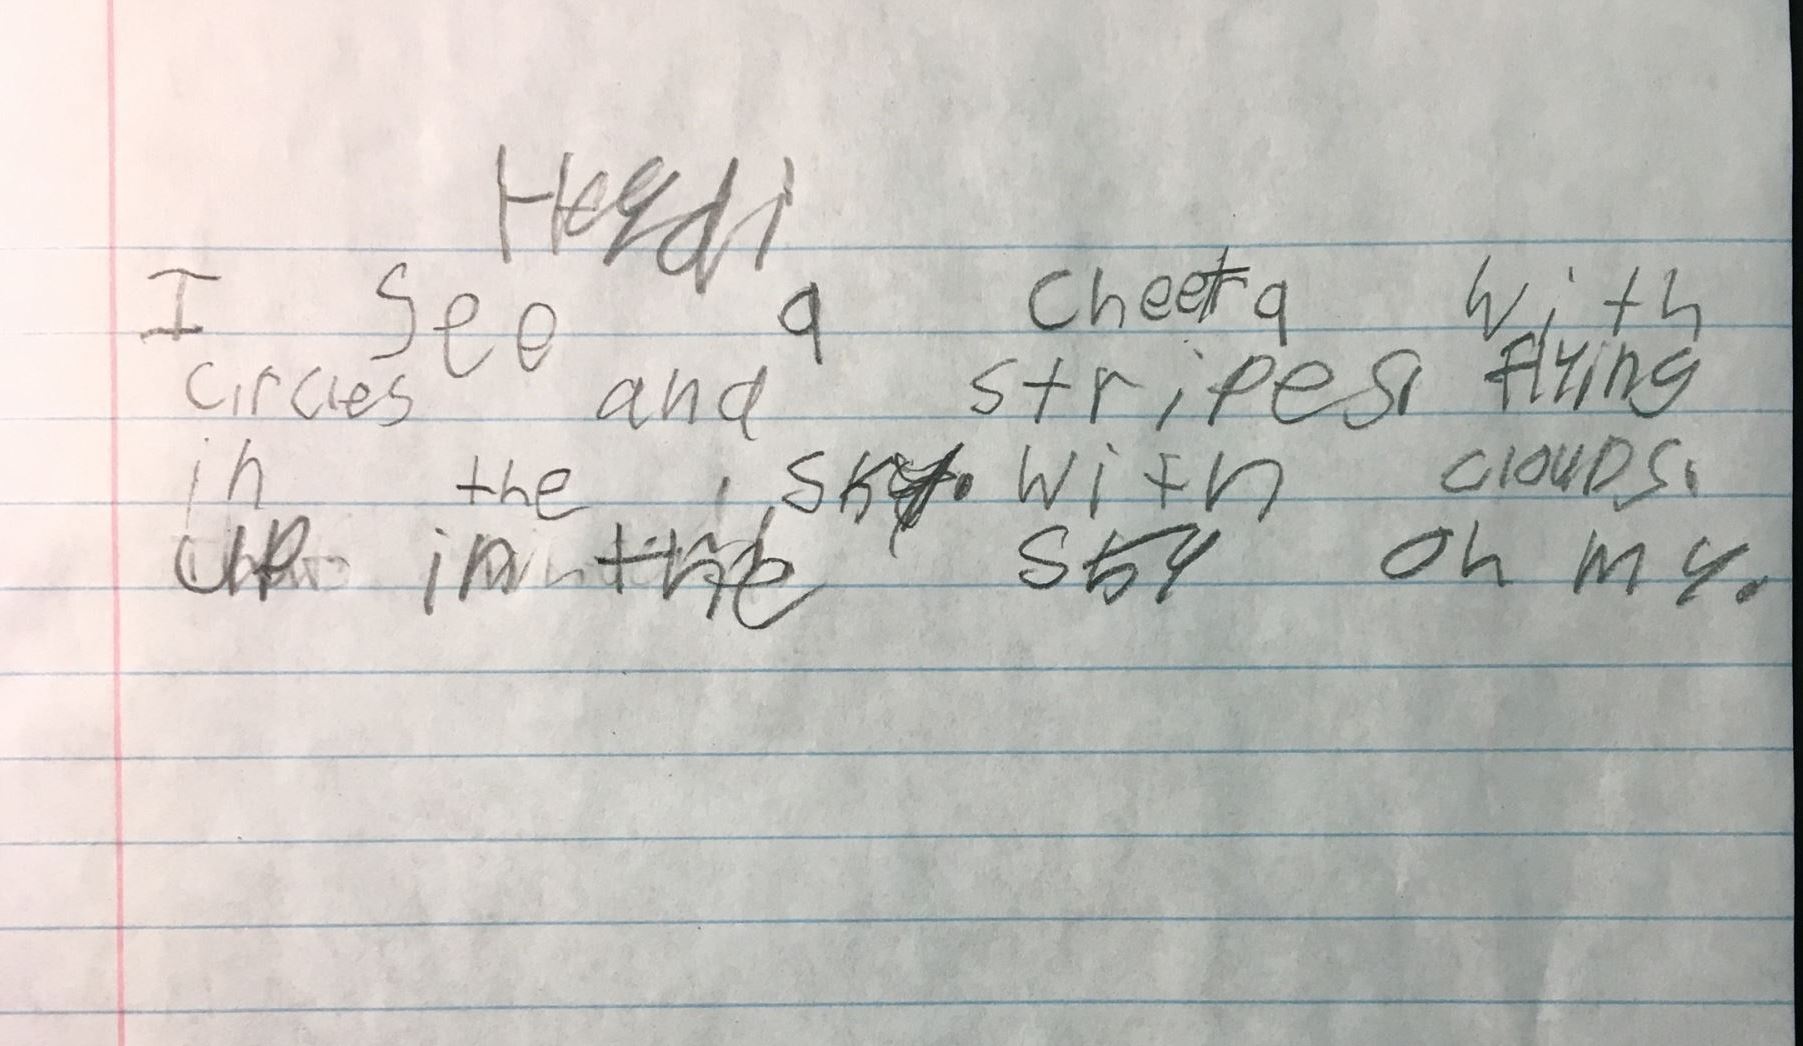 I See a Cheeta with
circles and stripes. flying
in the sky. with clouds.
up in the sky oh my.